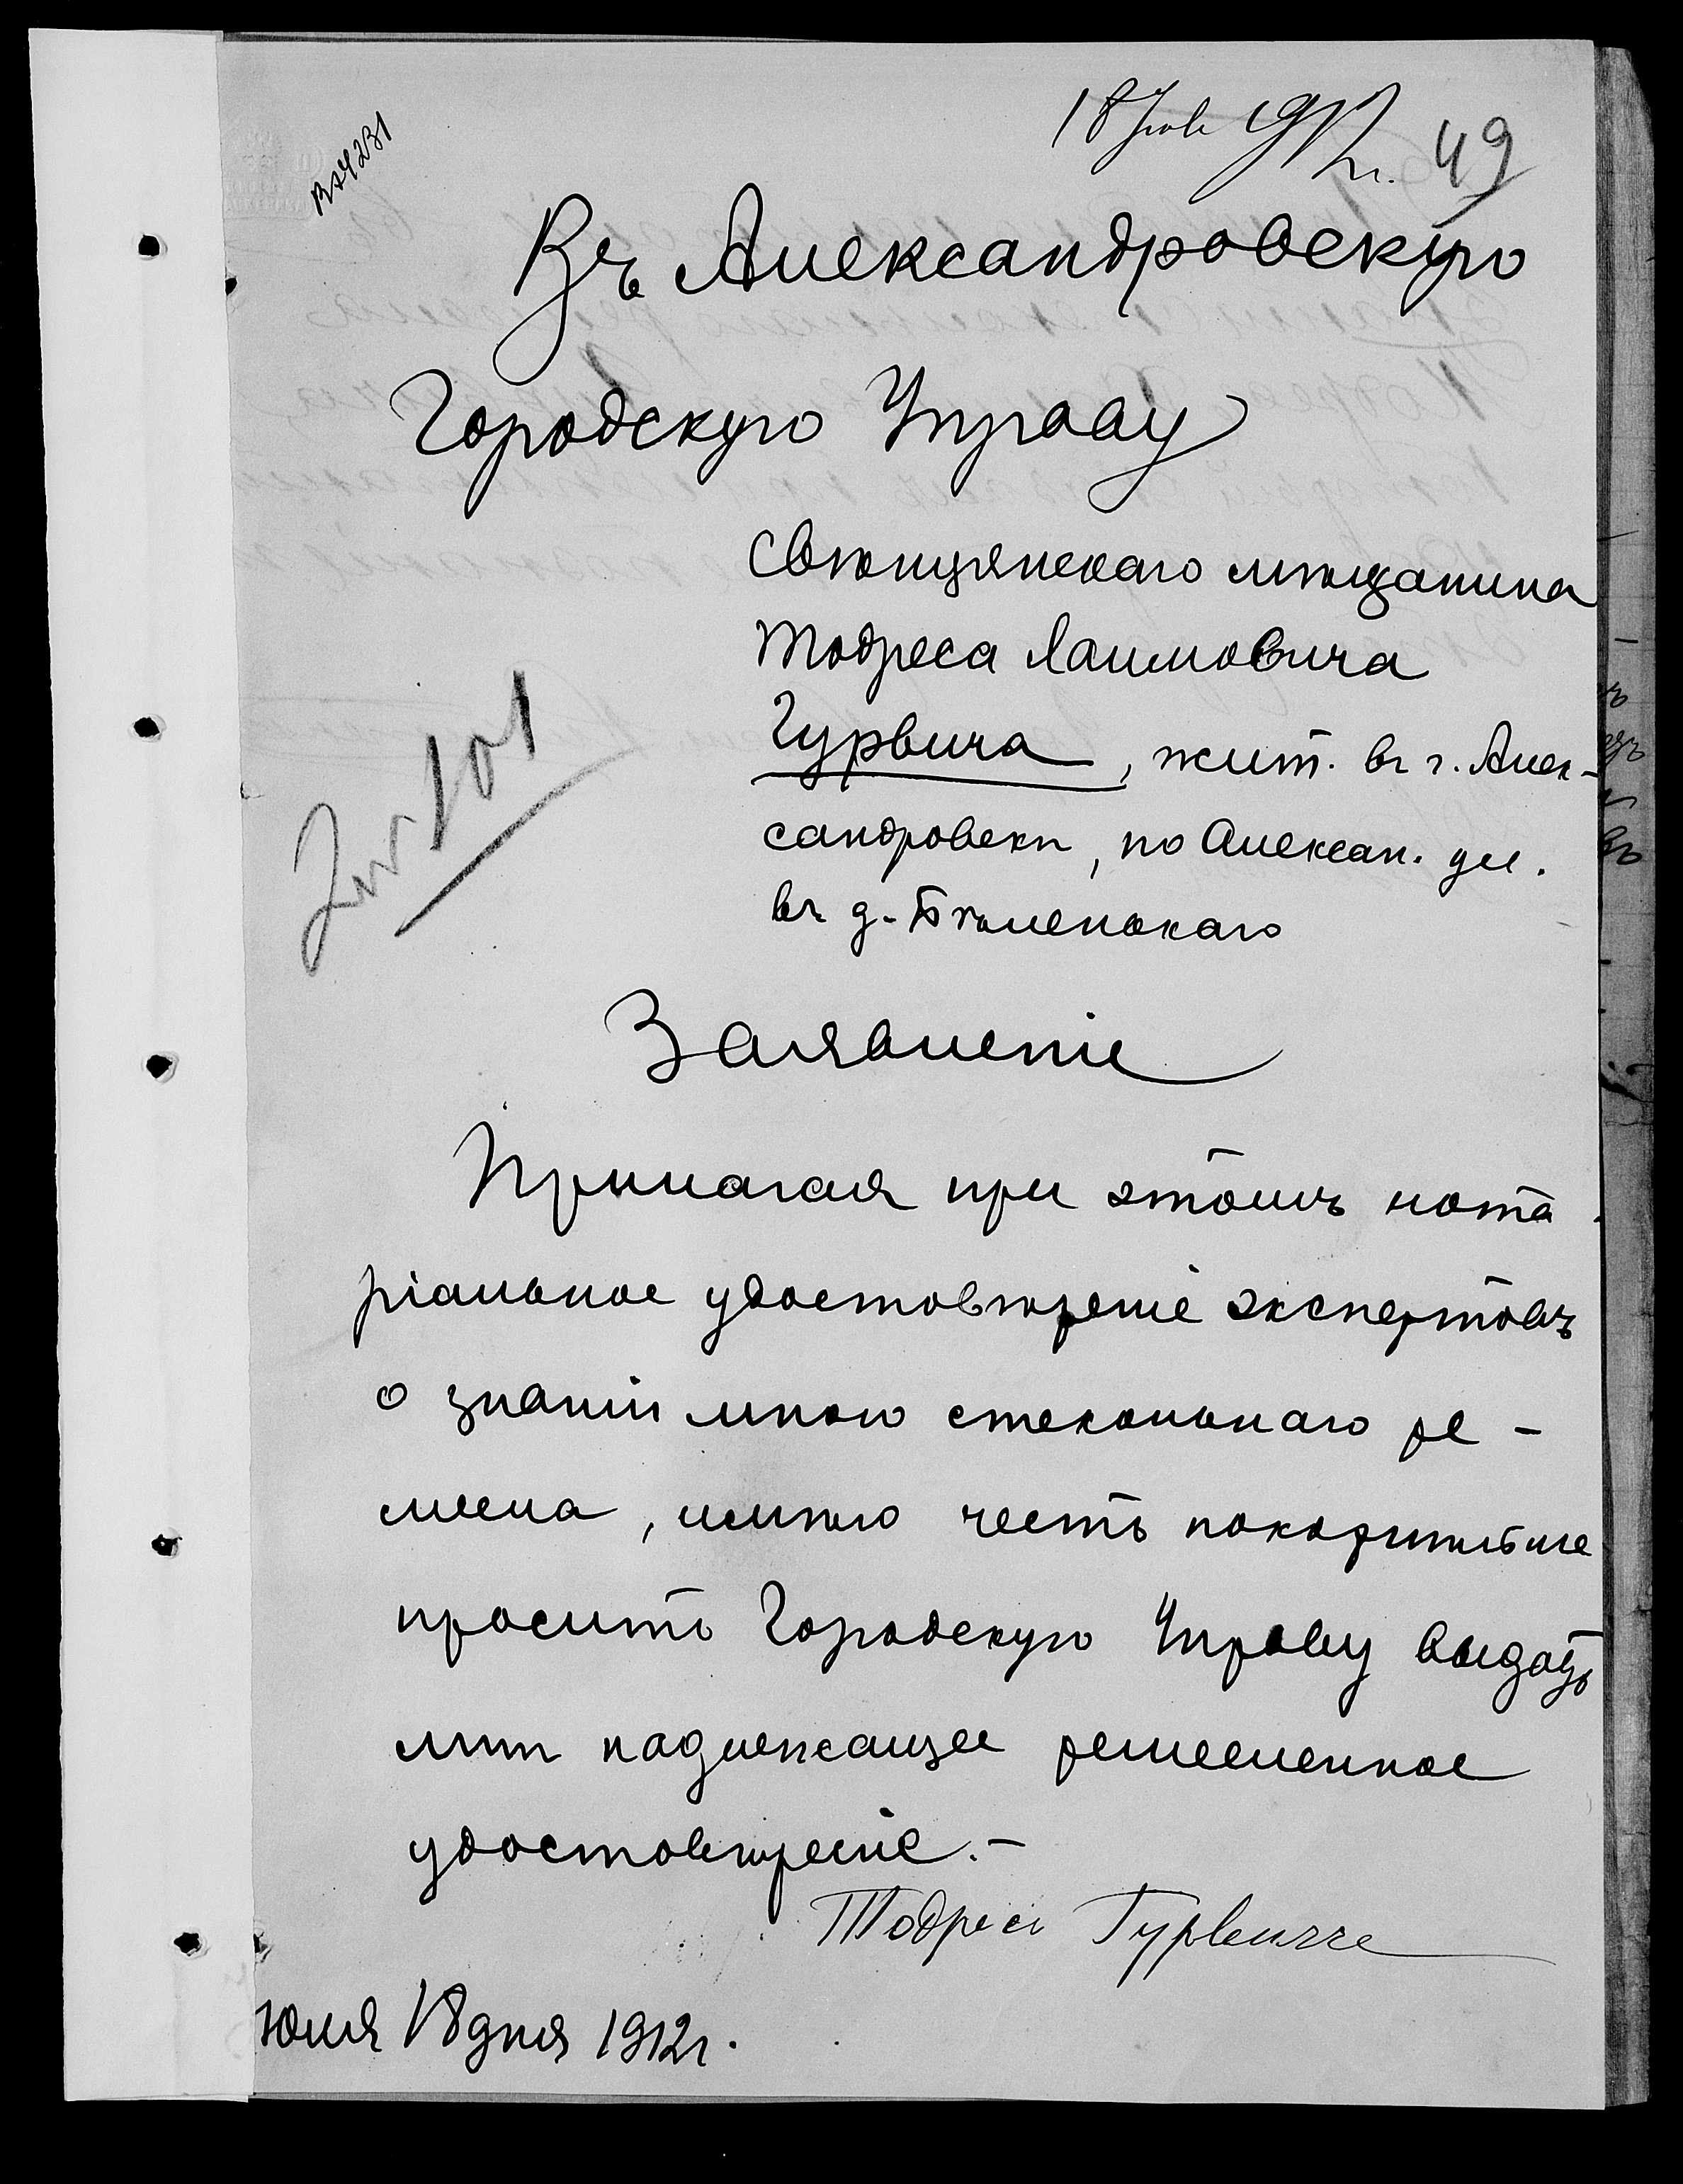 18 Іюля 1912 г. 49
Вх 4231
Въ Александровскую
Городскую Управу
Свѣнцянскаго мѣщанина
Тодреса Хаимовича
Гурвича, жит. въ г. Алек-
сандровскѣ, по Алексан. ул.
въ д. Бѣленькаго
№ 101
Заявленіе
Прилагая при этомъ нота
ріальное удостовѣреніе экспертовъ
о знаніи мною стекольнаго ре-
месла, имѣю честь покорнѣйше
просить Городскую Управу выдать
мнѣ надлежащее ремесленное
удостовѣреніе.-
Тодресъ Гурвичъ
Юля 18 дня 1912 г.